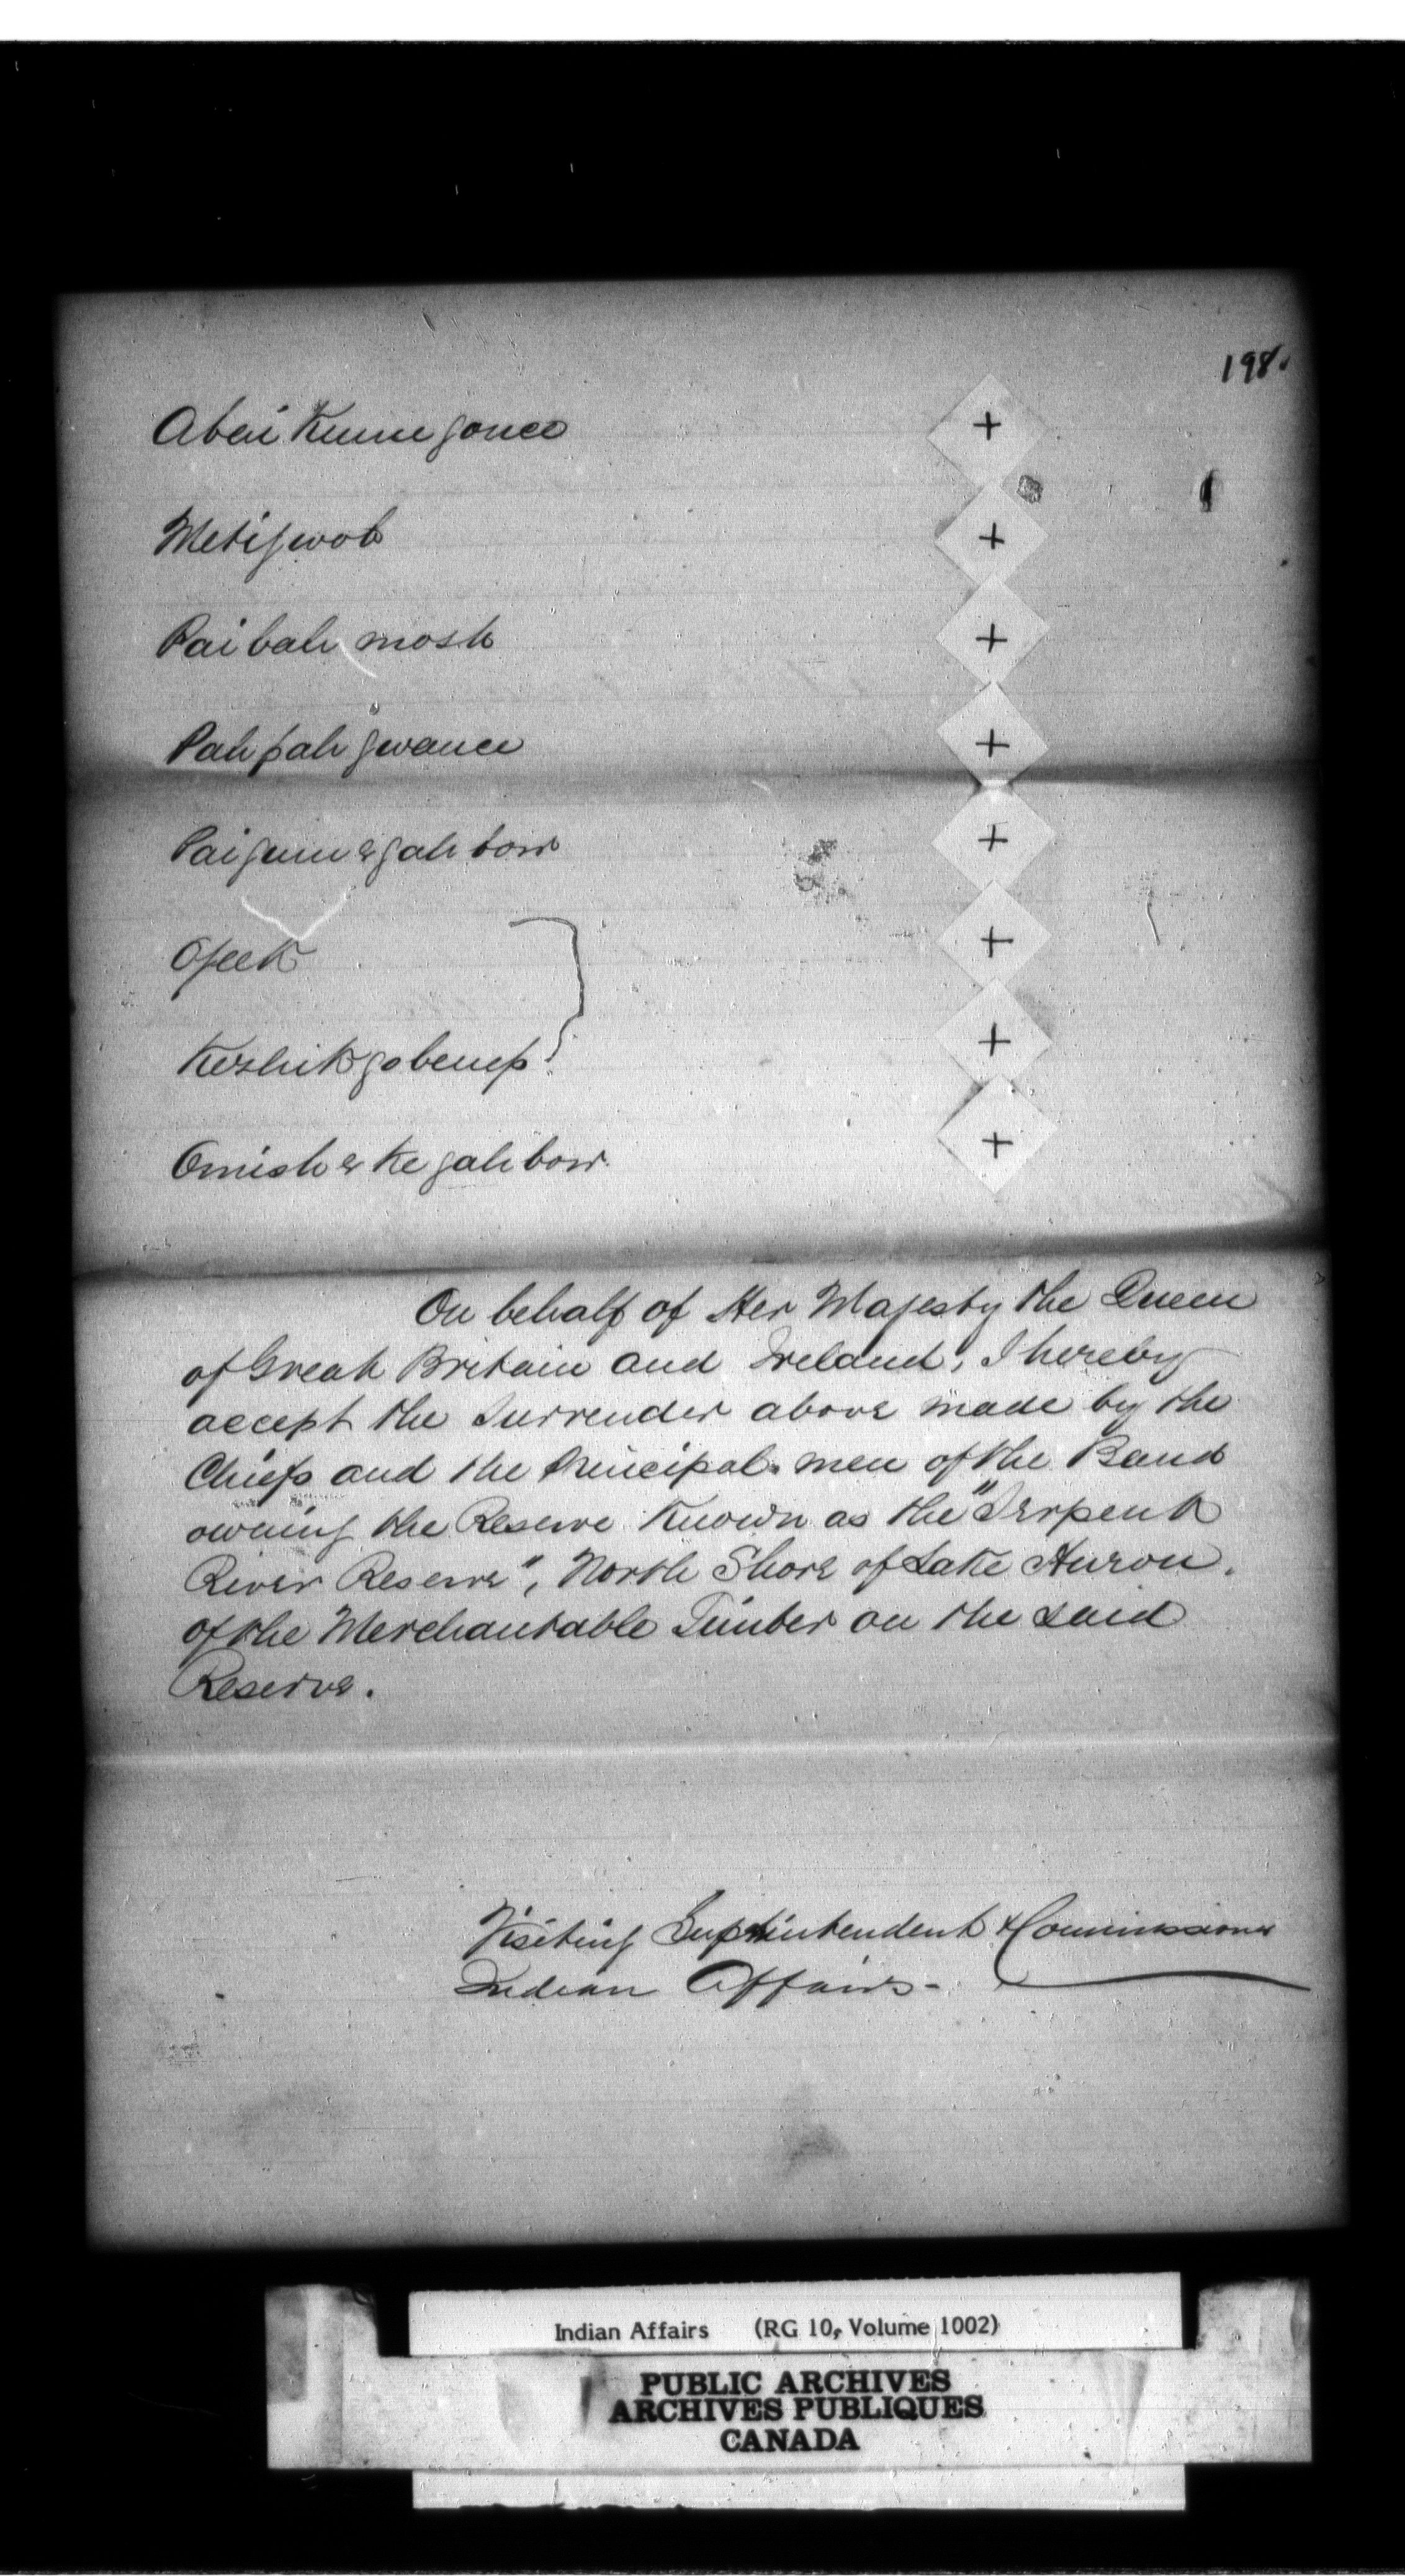 198.
Abei Kunne gonce +
Metigwob +
Pai bah mosh +
Pah pah gwance +
Pai gum e gah bow +
Ojeek +
Keshik go benep +
Omish e ke gah bow. +
On behalf of Her Majesty the Queen
of Great Britain and Ireland, I hereby
accept the Surrender above made by the
Chiefs and the Principal men of the Band
owning the Reserve known as the "Serpent
River Reserve", North Shore of Lake Huron.
of the Merchantable Timber on the said
Reserve.
Visiting Suptintendent & Commissioner
Indian Affairs -
Indian Affairs (RG 10, Volume 1002)
PUBLIC ARCHIVES
ARCHIVES PUBLIQUES
CANADA